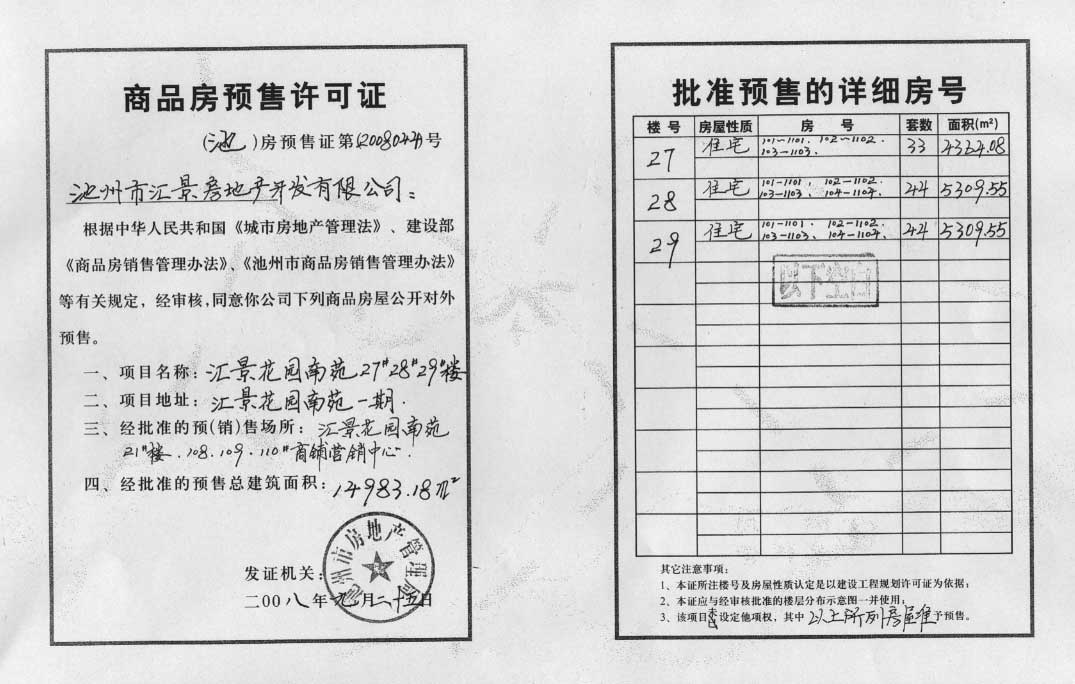 商品房预售许可证
(池)房预售证第(2008044)号
池州市汇景房地产开发有限公司:
根据中华人民共和国《城市房地产管理法》、建设部
《商品房销售管理办法》、《池州市商品房销售管理办法》
等有关规定,经审核,同意你公司下列商品房屋公开对外
预售。
一、项目名称:汇景花园南苑27#28#29#楼
二、项目地址:汇景花园南苑一期.
三、经批准的预(销)售场所:汇景花园南苑
21#楼.108.109.110#商铺营销中心.
四、经批准的预售总建筑面积:14983.18m²
发证机关:
池州市房地产管理局
二00八年九月二十五日
批准预售的详细房号
楼号 房屋性质 房号 套数 面积(m²)
27 住宅 101-1101. 102-1102. 103-1103. 33 4364.08
28 住宅 101-1101, 102-1102. 103-1103、104-1104. 44 5309.55
29 住宅 101-1101. 102-1102. 103-1103、104-1104. 44 5309.55
以下空白
其它注意事项:
1、本证所注楼号及房屋性质认定是以建设工程规划许可证为依据;
2、本证应与经审核批准的楼层分布示意图一并使用;
3、该项目未设定他项权,其中以上所列房屋准予预售。